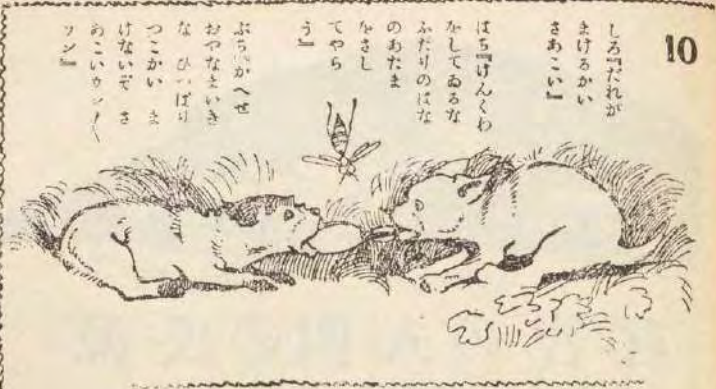 10
しろ『だれが
まけるかい
さあこい』
はち『けんくわ
をしてゐるな
ふたりのはな
のあたま
をさし
てやら
う』
ぶち『かへせ
おやなまいき
な ひつぱり
つこかい ま
けないぞ さ
あこいウン〱
ウン』